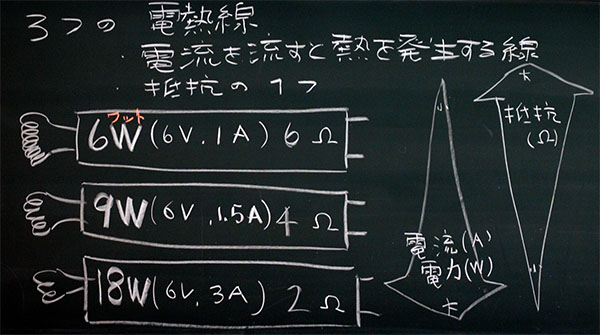 3つの 電熱線
・電流を流すと熱を発生する線
・抵抗の1つ
ワット
6W(6V.1A) 6Ω
9W(6V.1.5A) 4Ω
18W(6V.3A) 2Ω
小
電流(A)
電力(W)
大
大
抵抗
(Ω)
小